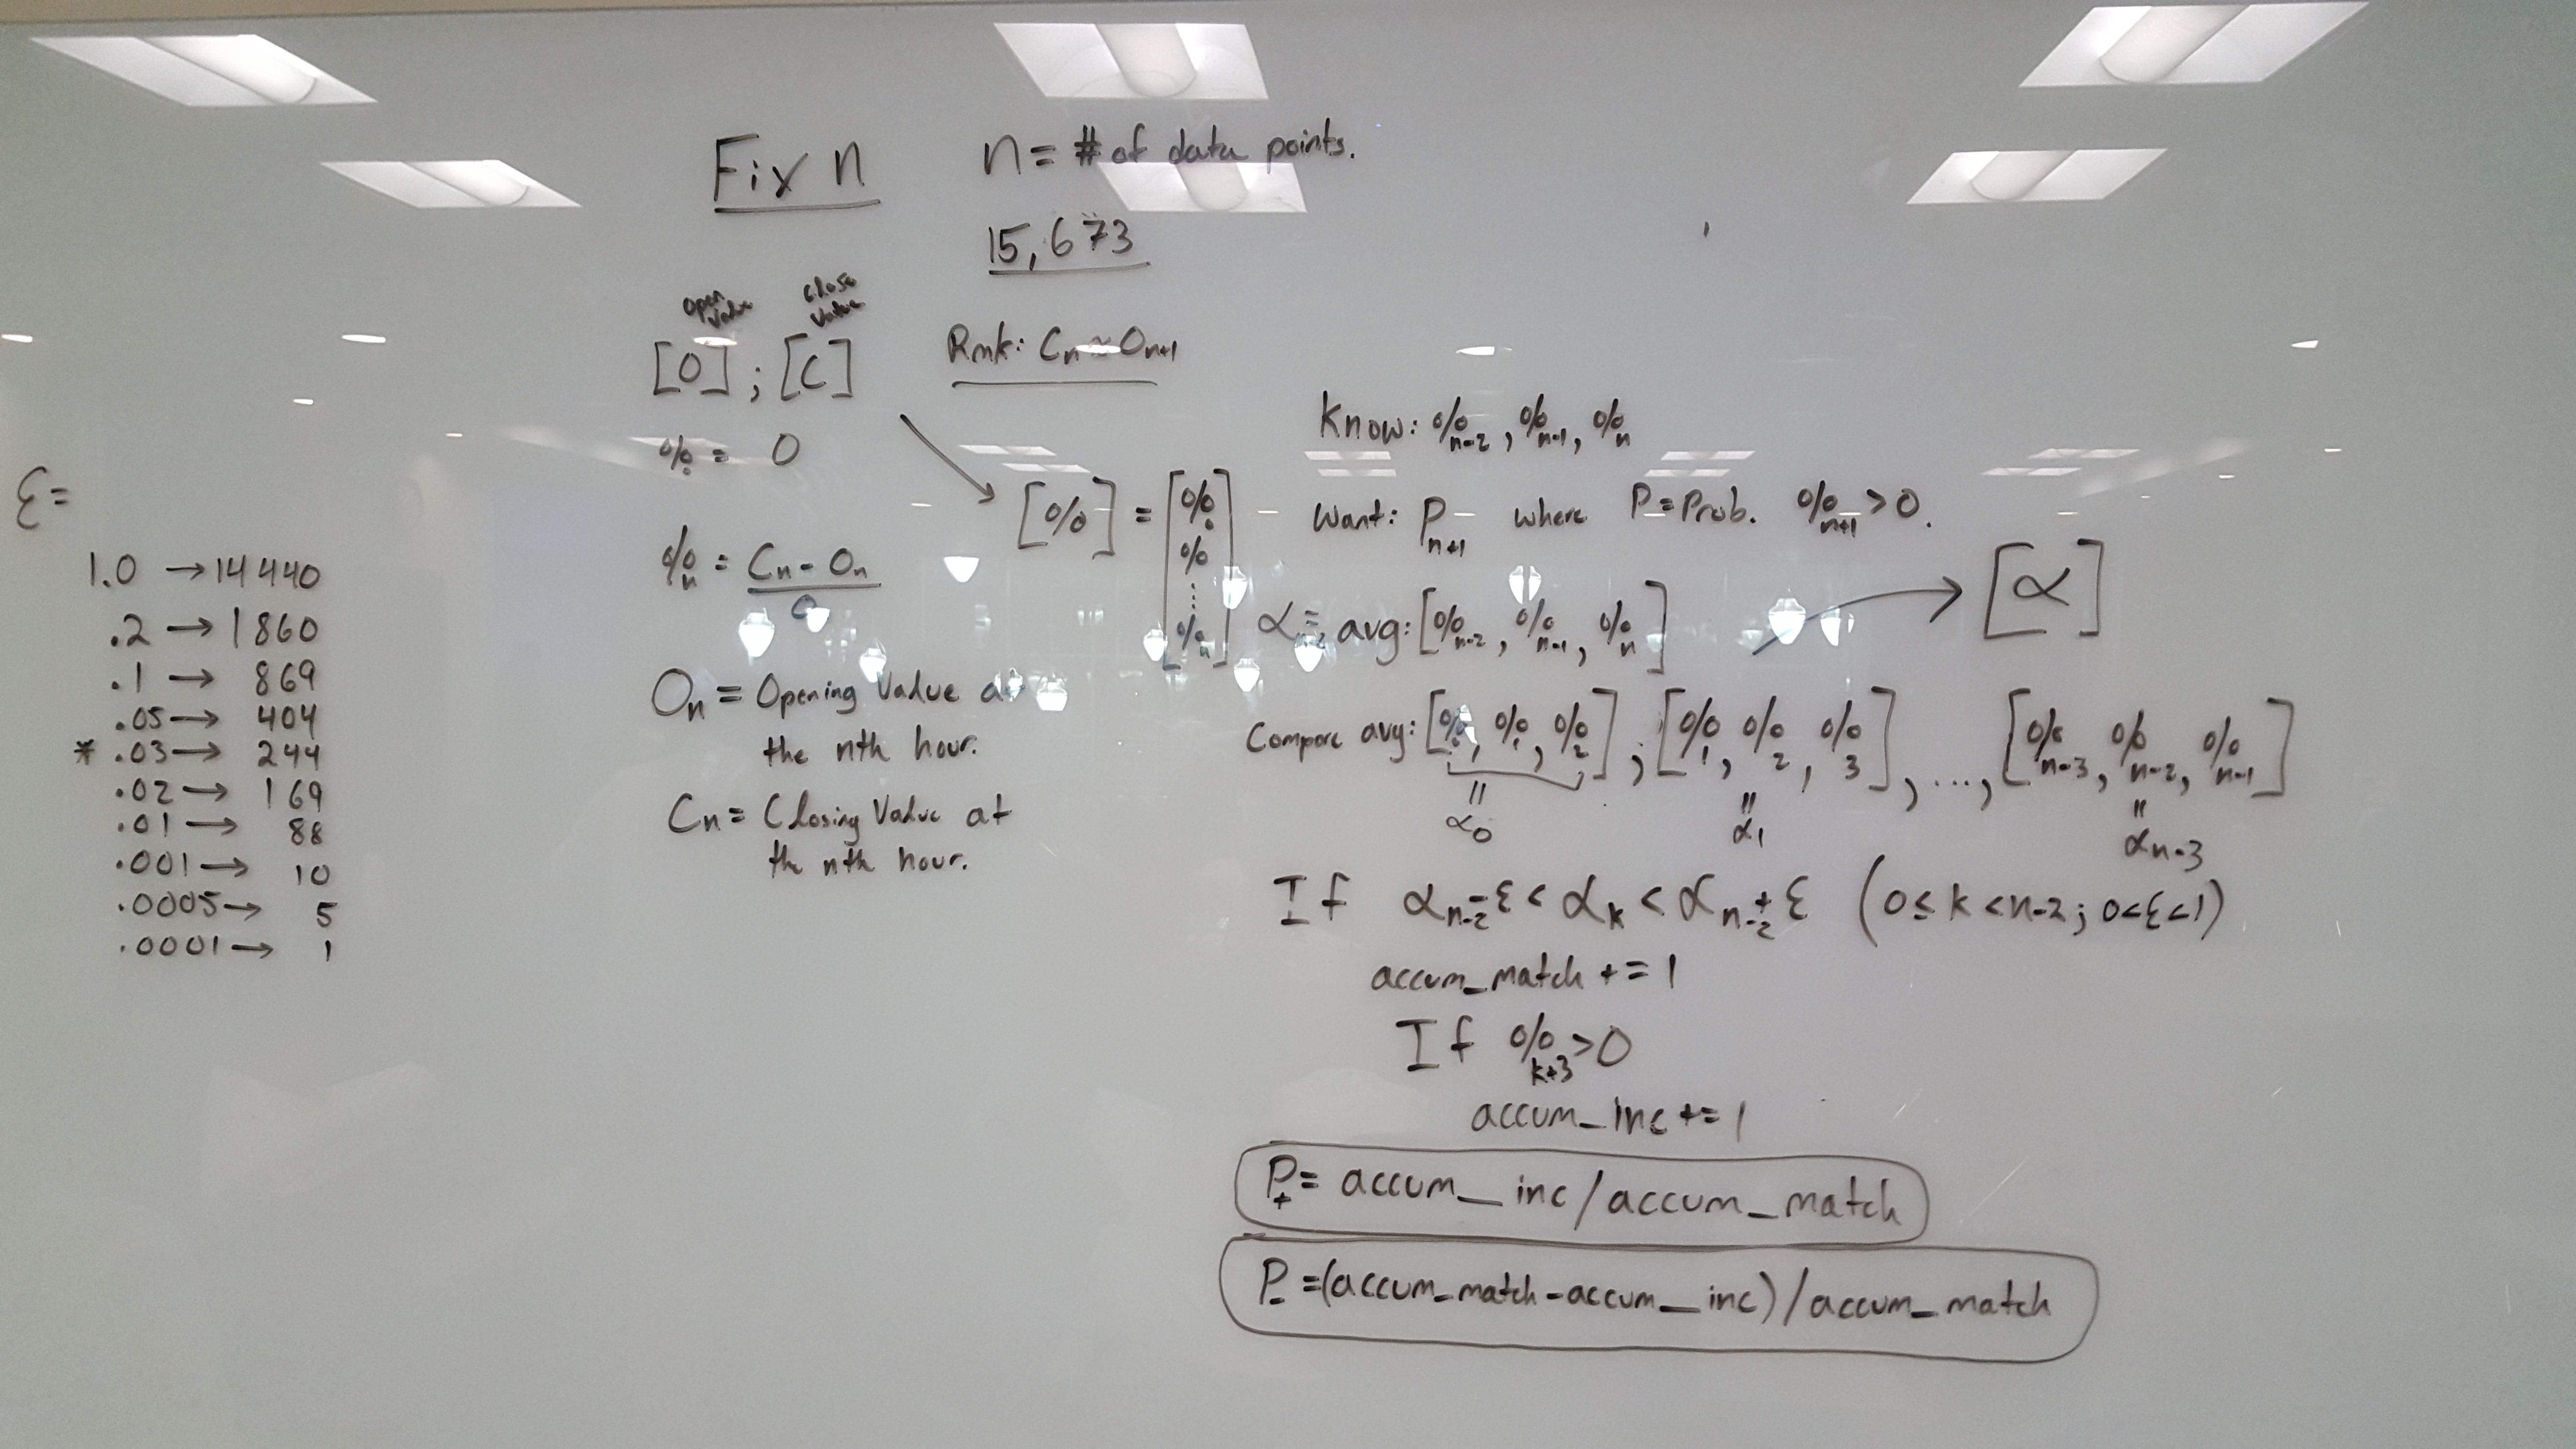 Fix n
n = # of data points.
15,673
open value
close value
[O] ; [C]
Rmk: Cn ≈ On+1
%0 = 0
%n = Cn - On
O
On = Opening Value at
the nth hour.
Cn = Closing Value at
the nth hour.
ε =
1.0 → 14440
.2 → 1860
.1 → 869
.05 → 404
* .03 → 244
.02 → 169
.01 → 88
.001 → 10
.0005 → 5
.0001 → 1
[%] = [%0 % ⋮ %n]
Know: %n-2, %n-1, %n
Want: Pn+1 where P = Prob. %n+1 > 0.
αn-2 = avg: [%n-2, %n-1, %n] → [α]
Compare avg: [%0, %1, %2] ; [%1, %2, %3], ..., [%n-3, %n-2, %n-1]
= α0
= α1
= αn-3
If αn-2 - ε < αk < αn-2 + ε (0 ≤ k < n-2; 0 < ε < 1)
accum_match += 1
If %k+3 > 0
accum_inc += 1
P+ = accum_inc / accum_match
P- = (accum_match - accum_inc) / accum_match